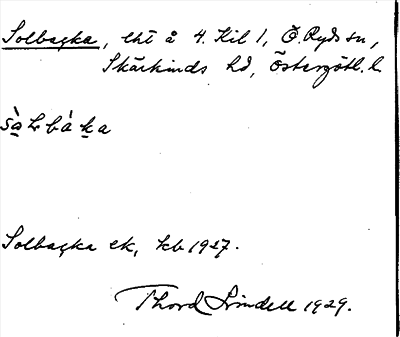 Solbacka, lht å 4. Kil 1, Ö. Ryds sn,
Skärkinds hd, Östergötl. l.
sò̱lbà̱ka
Solbacka ek, kb 1927.
Thord Lindell 1929.